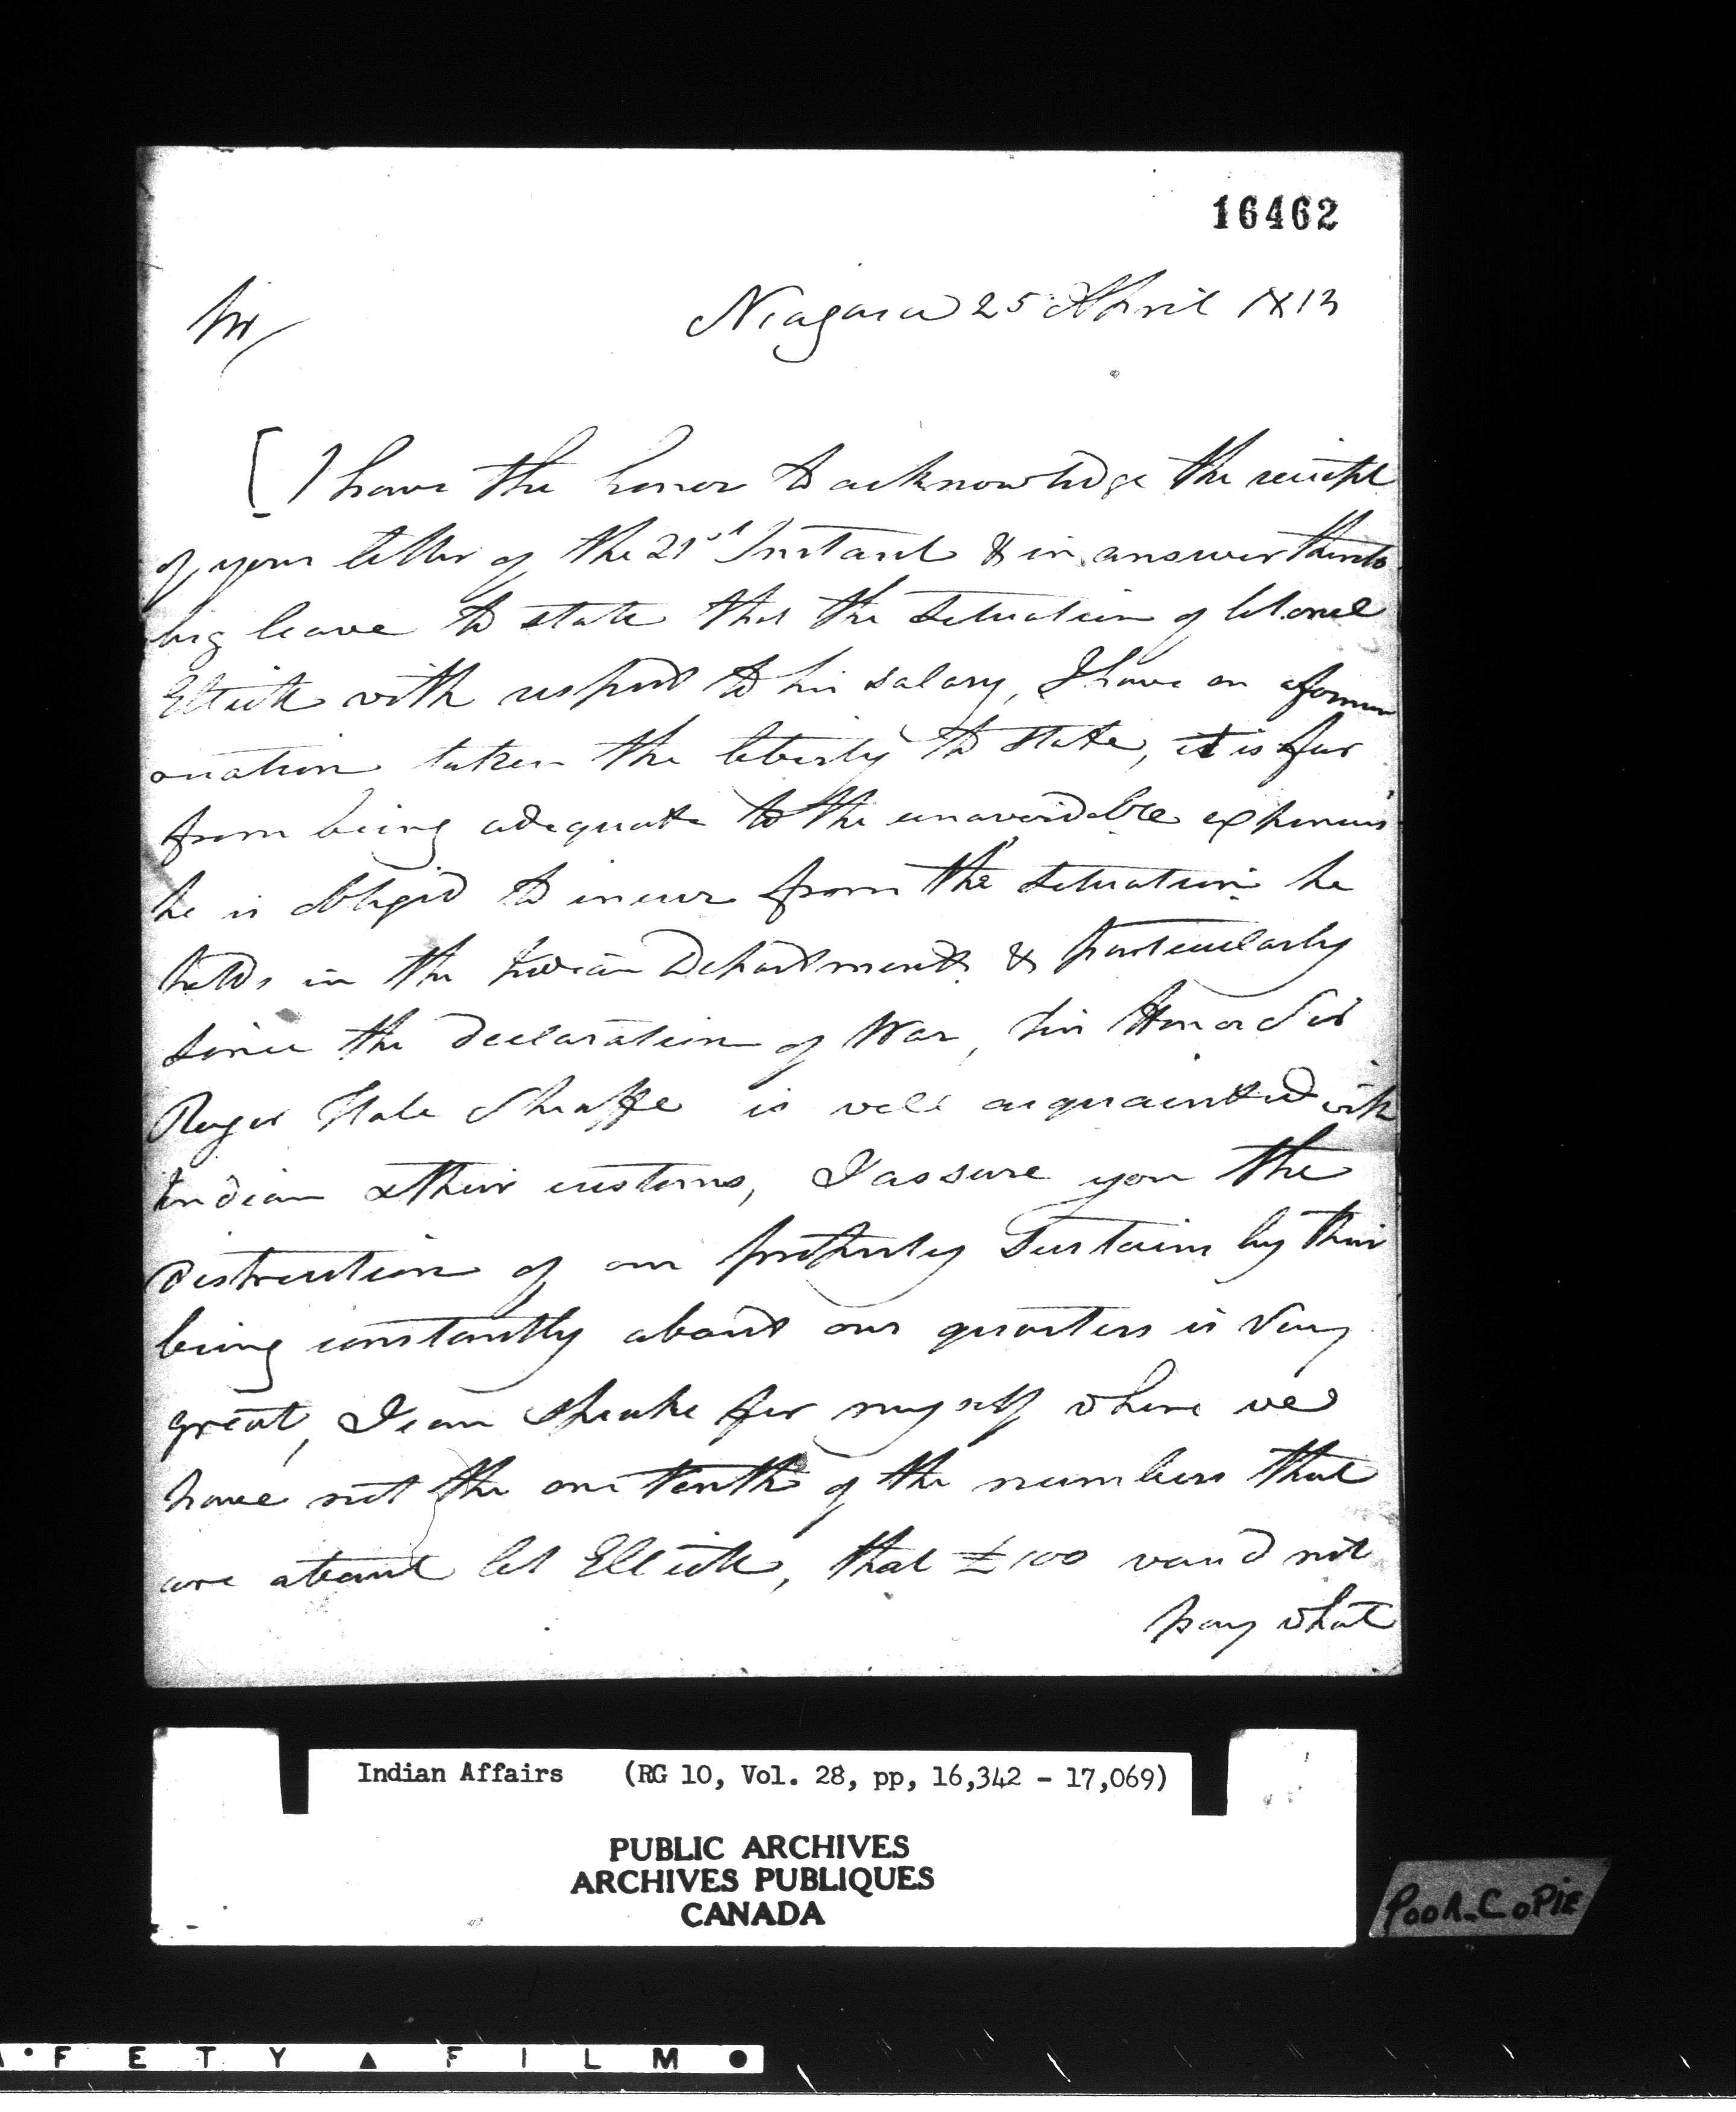 16462
Niagara 25 April 1813
Sir/
I have the honor to acknowledge the receipt
of your letter of the 21st Instant & in answer thereto
beg leave to state that the Situation of Colonel
Elliott with respect to his salary, I have on a former
occation taken the liberty to state, it is far
from being adequate to the unavoidable expences
he is obliged to incur from the Situation he
holds in the Indian Department & particularly
since the declaration of War, his Honor Sir
Roger Hale Sheaffe is well acquainted with
Indian & their customs, I assure you the
distruction of our property Sustain by their
being constantly about our quarters is very
great, I can speake for myself where we
have not the one Tenth of the numbers that
are about Col Elliott, that £100 would not
pay what
Indian Affairs (RG 10, Vol. 28, pp, 16,342 - 17,069)
PUBLIC ARCHIVES
ARCHIVES PUBLIQUES
CANADA
POOR-COPIE
FETY ▲ FILM ●